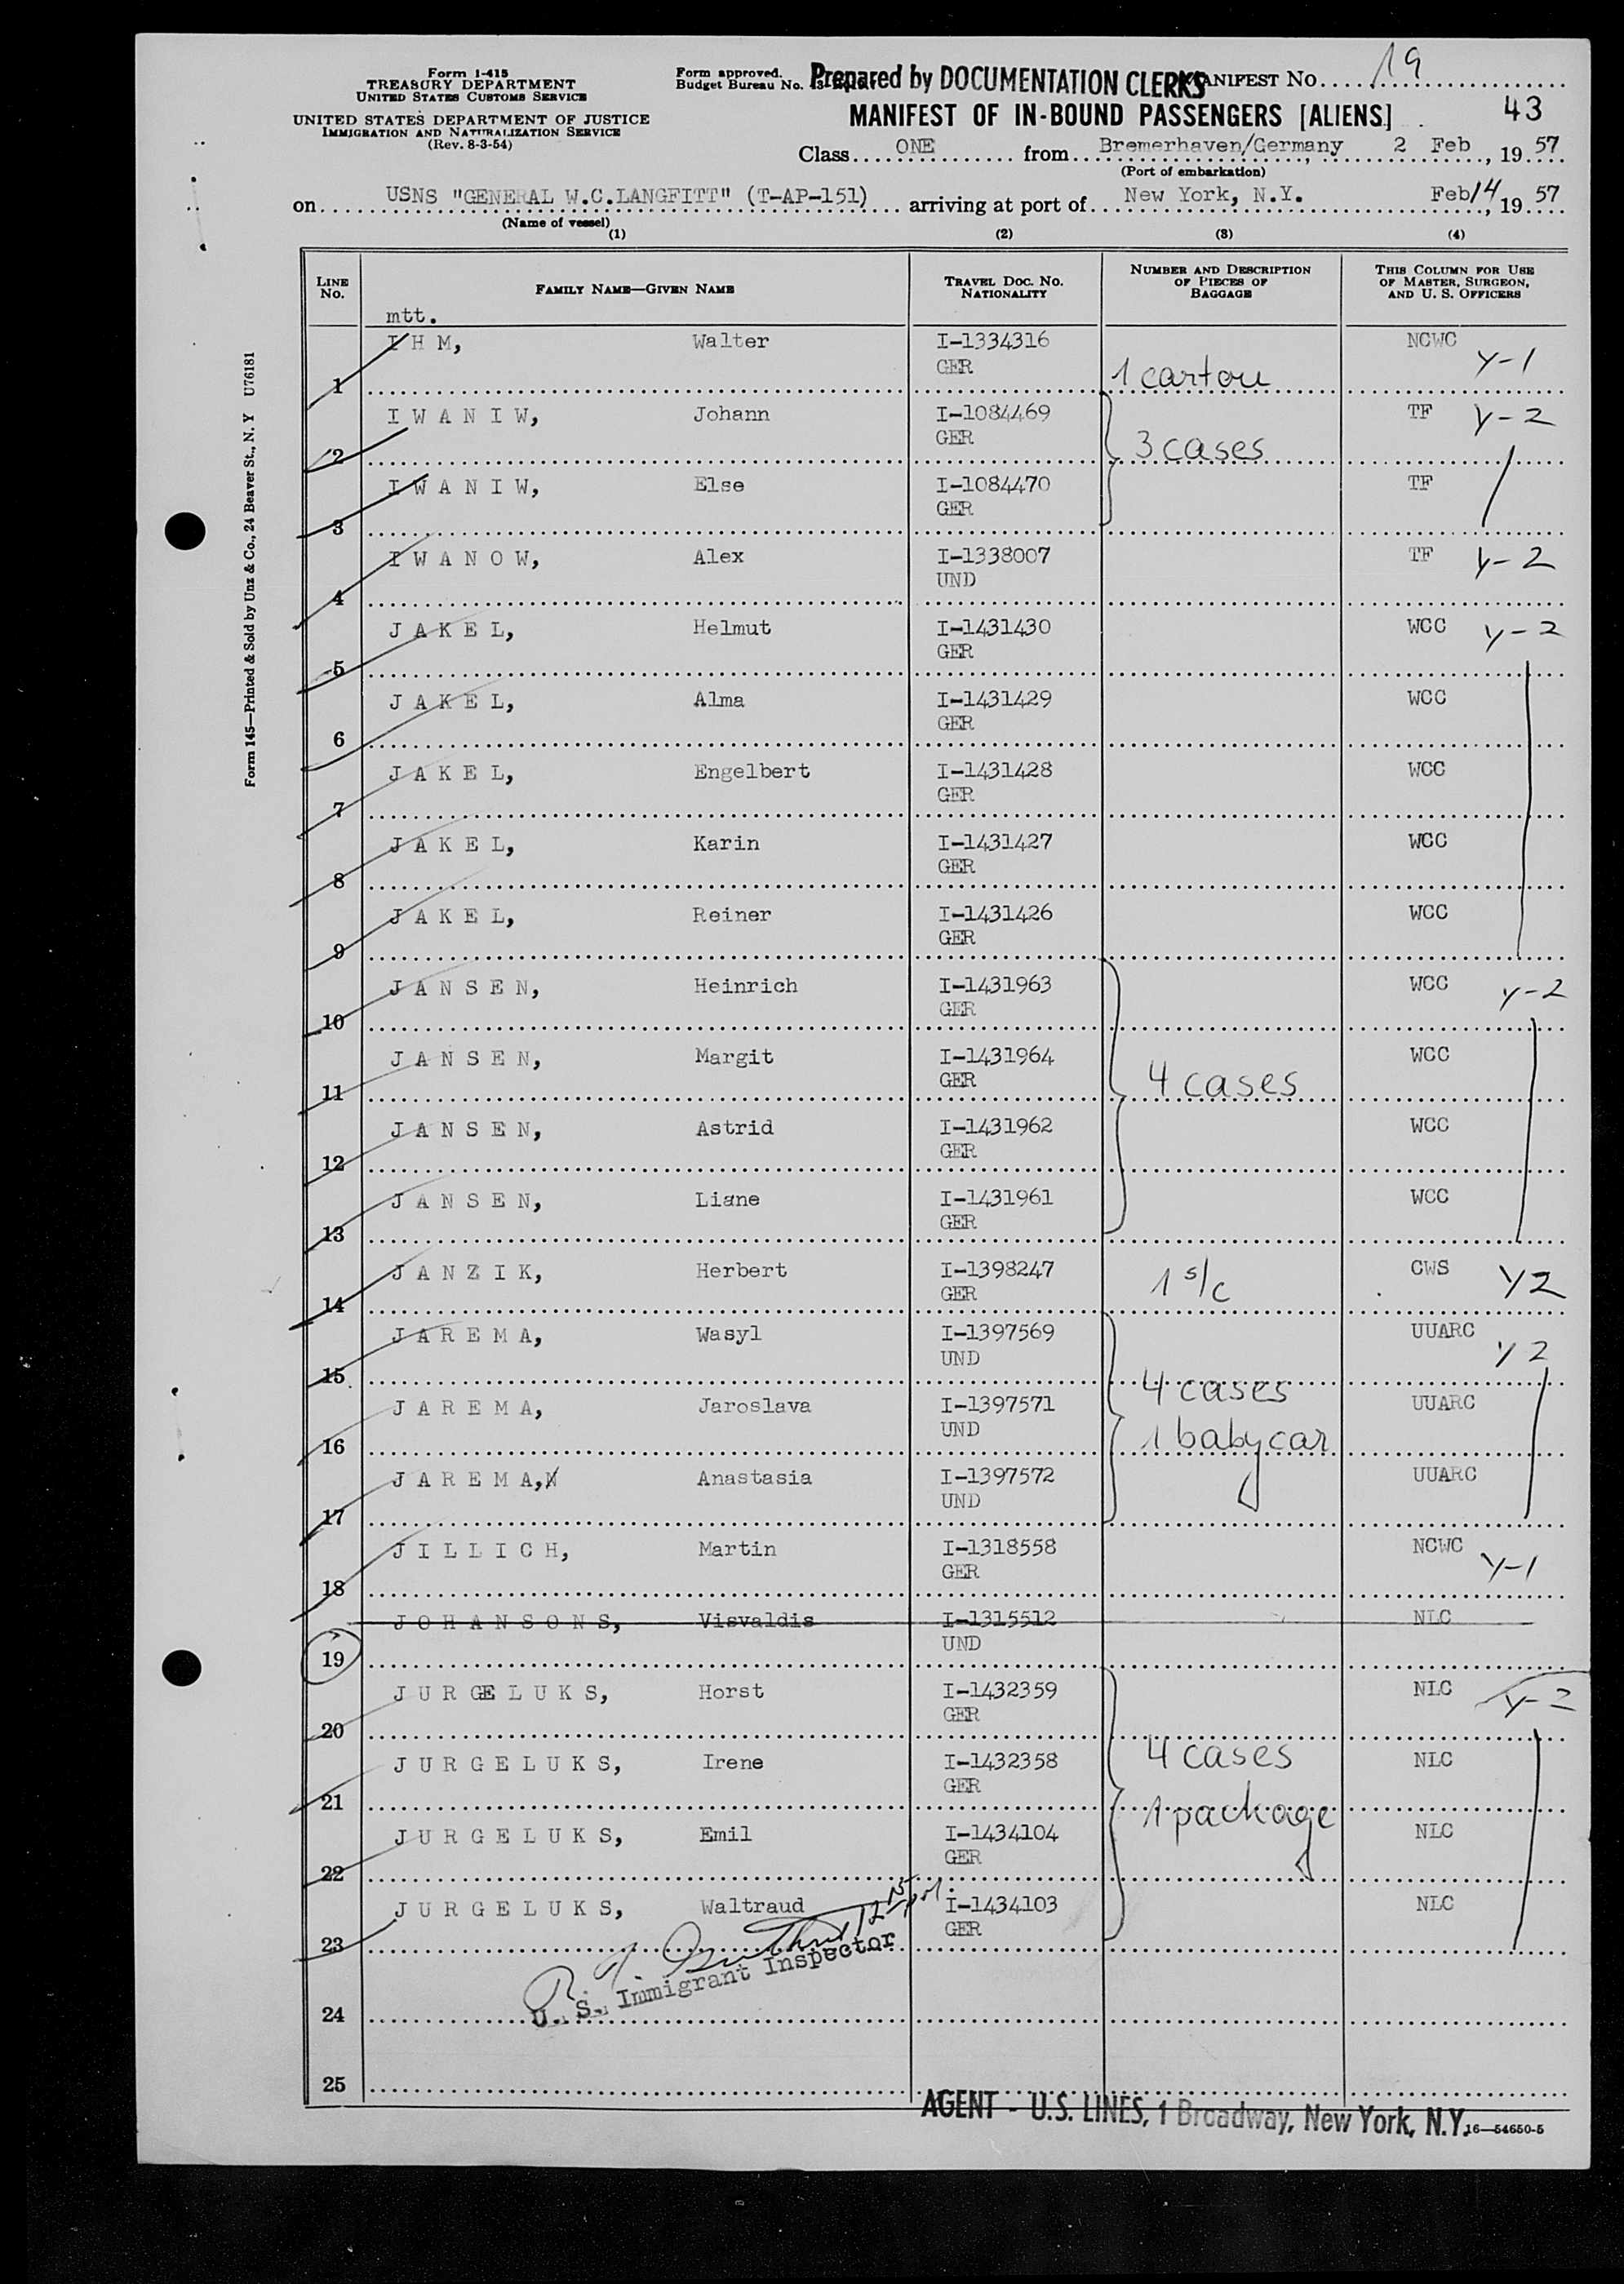 Form I-415
TREASURY DEPARTMENT
UNITED STATES CUSTOMS SERVICE
UNITED STATES DEPARTMENT OF JUSTICE
IMMIGRATION AND NATURALIZATION SERVICE
(Rev. 8-3-54)
Form approved.
Budget Bureau No.
Prepared by DOCUMENTATION CLERKS
MANIFEST No. 19
MANIFEST OF IN-BOUND PASSENGERS [ALIENS]
43
Class ONE from Bremerhaven/Germany, 2 Feb, 1957
(Port of embarkation)
on USNS "GENERAL W.C.LANGFITT" (T-AP-151) arriving at port of New York, N.Y. Feb 14, 1957
(Name of vessel)
(1) (2) (3) (4)
LINE No. FAMILY NAME—GIVEN NAME TRAVEL DOC. NO. NATIONALITY NUMBER AND DESCRIPTION OF PIECES OF BAGGAGE THIS COLUMN FOR USE OF MASTER, SURGEON, AND U. S. OFFICERS
mtt.
1 I H M, Walter I-1334316 GER 1 carton NCWC Y-1
2 I W A N I W, Johann I-1084469 GER 3 cases TF Y-2
3 I W A N I W, Else I-1084470 GER TF
4 I W A N O W, Alex I-1338007 UND TF Y-2
5 J A K E L, Helmut I-1431430 GER WCC Y-2
6 J A K E L, Alma I-1431429 GER WCC
7 J A K E L, Engelbert I-1431428 GER WCC
8 J A K E L, Karin I-1431427 GER WCC
9 J A K E L, Reiner I-1431426 GER WCC
10 J A N S E N, Heinrich I-1431963 GER WCC Y-2
11 J A N S E N, Margit I-1431964 GER 4 cases WCC
12 J A N S E N, Astrid I-1431962 GER WCC
13 J A N S E N, Liane I-1431961 GER WCC
14 J A N Z I K, Herbert I-1398247 GER 1 s/c CWS Y2
15 J A R E M A, Wasyl I-1397569 UND 4 cases UUARC Y2
16 J A R E M A, Jaroslava I-1397571 UND 1 babycar UUARC
17 J A R E M A, Anastasia I-1397572 UND UUARC
18 J I L L I C H, Martin I-1318558 GER NCWC Y-1
19 J O H A N S O N S, Visvaldis I-1315512 UND NLC
20 J U R G E L U K S, Horst I-1432359 GER NLC Y-2
21 J U R G E L U K S, Irene I-1432358 GER 4 cases NLC
22 J U R G E L U K S, Emil I-1434104 GER 1 package NLC
23 J U R G E L U K S, Waltraud I-1434103 GER NLC
U. S. Immigrant Inspector
24
25
AGENT - U.S. LINES, 1 Broadway, New York, N.Y.
16—54650-5
Form 145—Printed & Sold by Unz & Co., 24 Beaver St., N. Y U76181